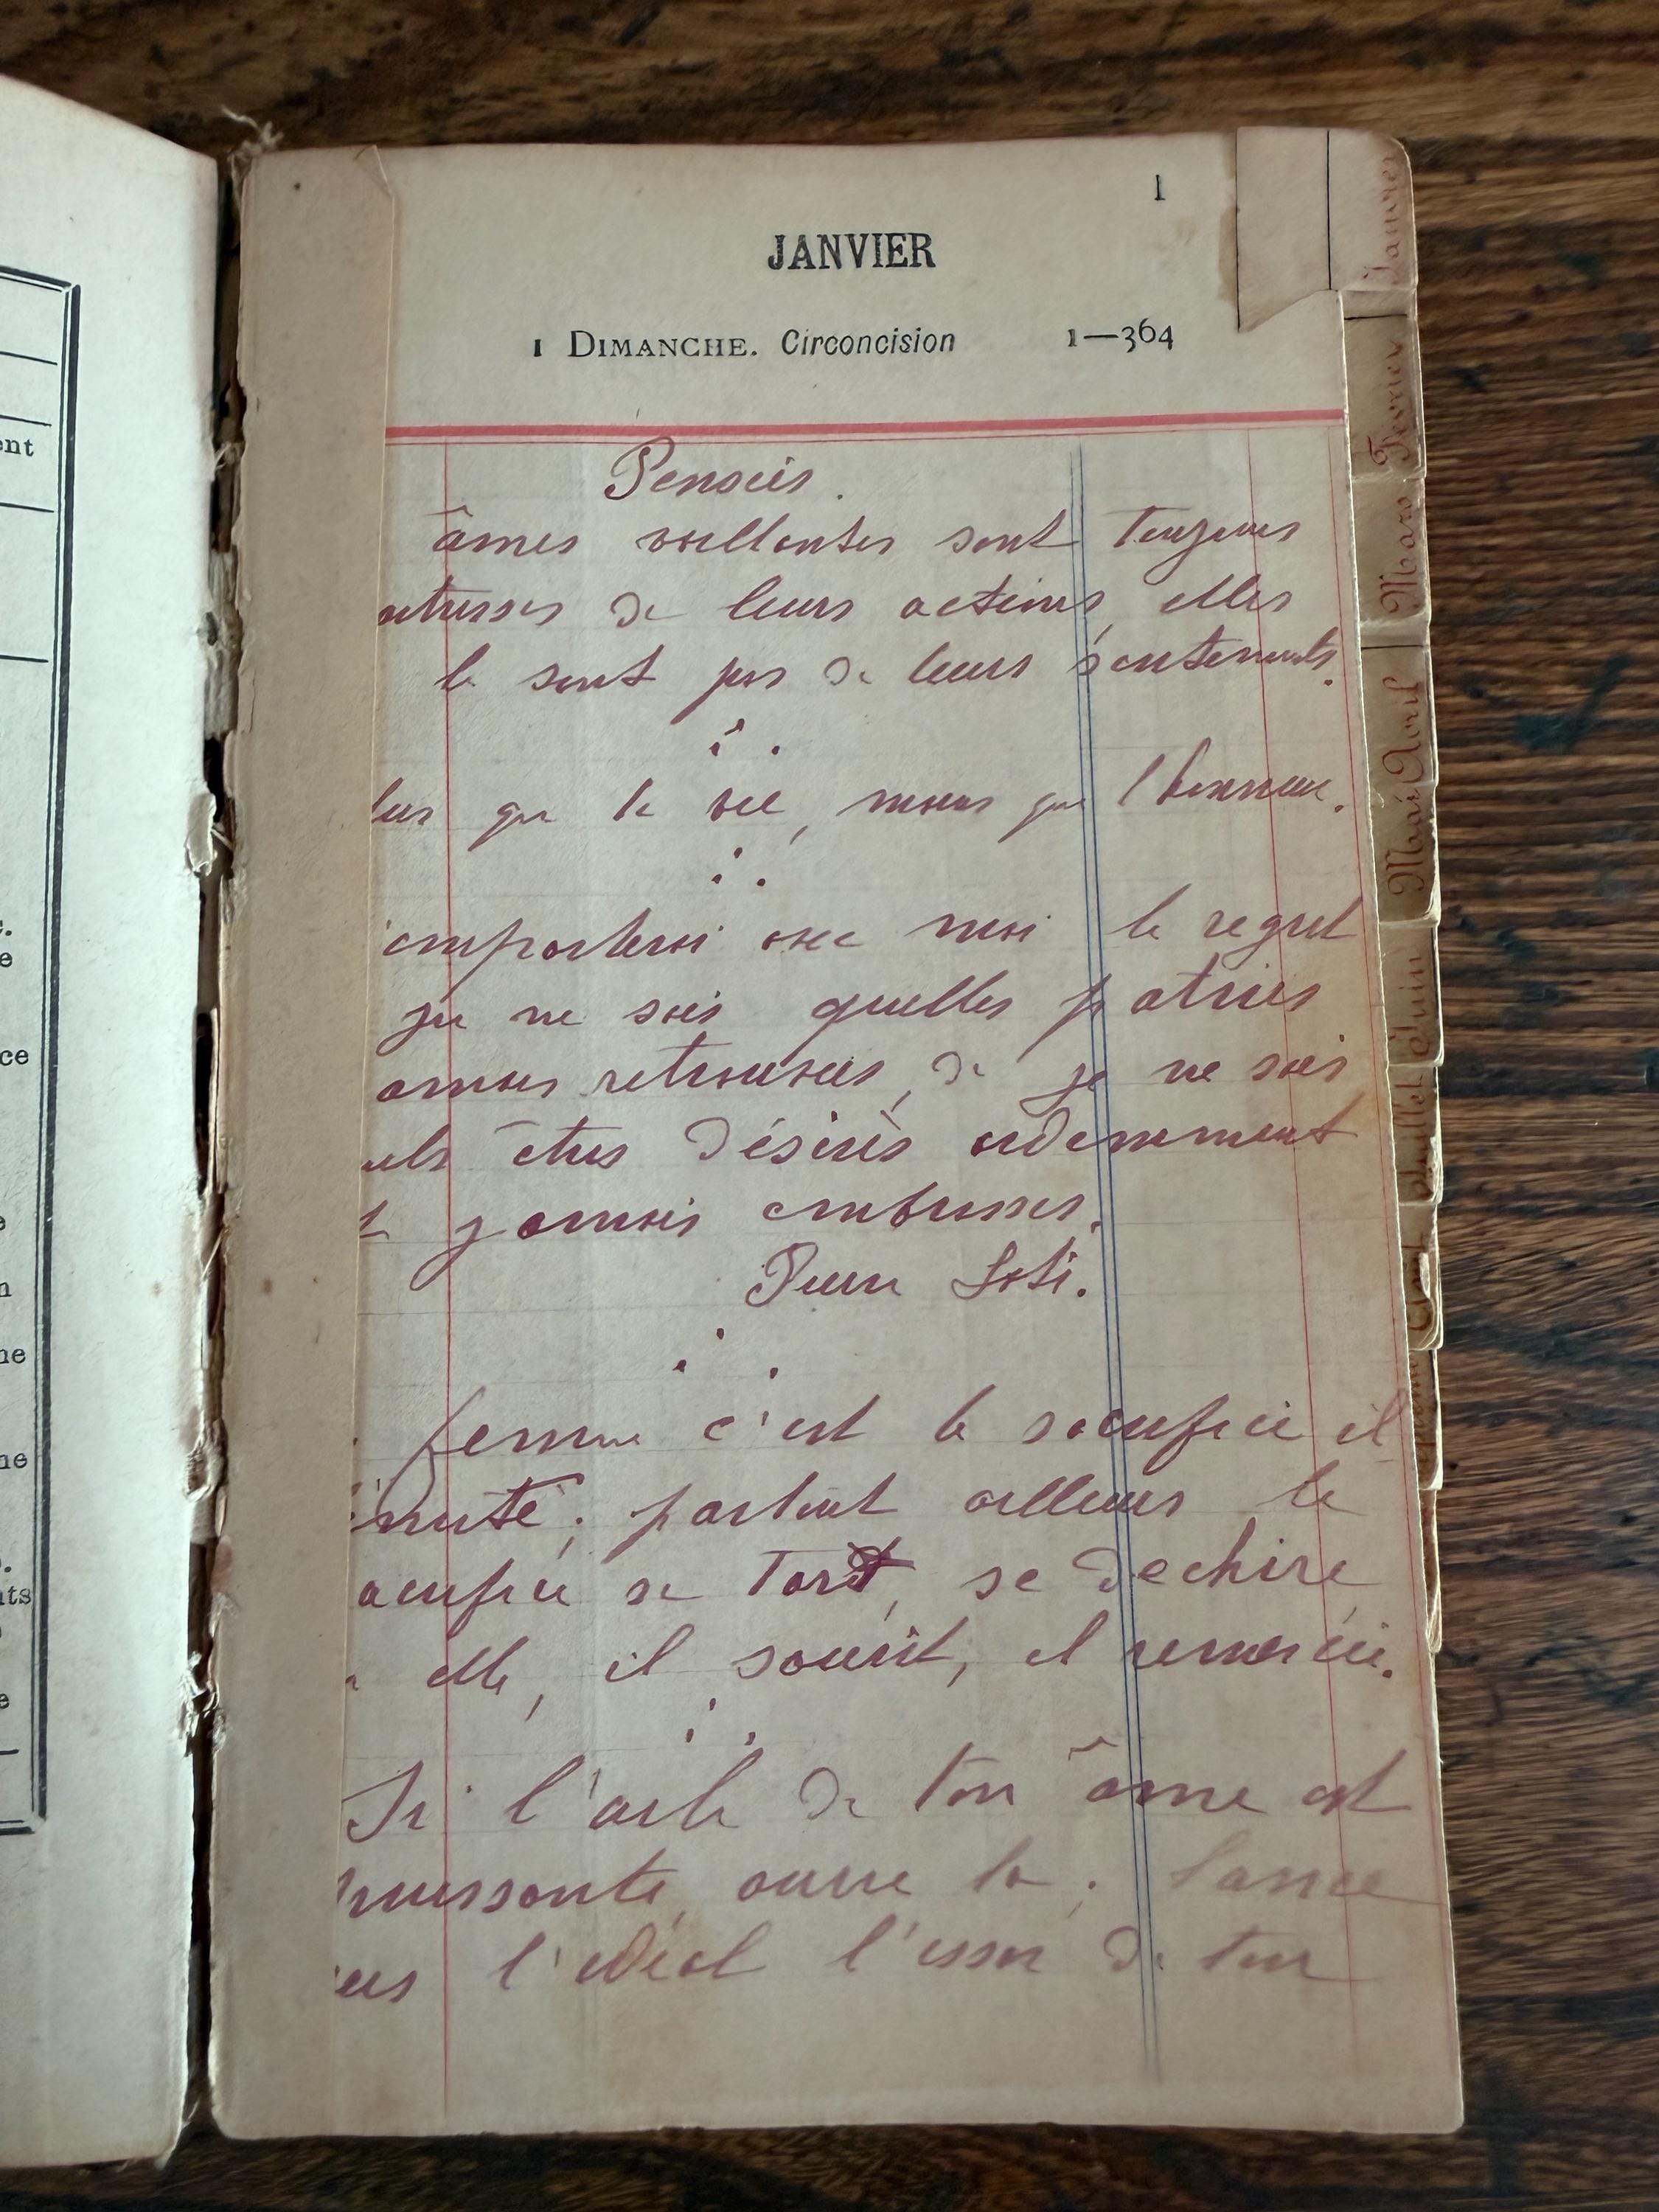 1
JANVIER
1 DIMANCHE. Circoncision 1—364
Pensées.
âmes vaillantes sont toujours
de leurs actions, elles
le sont pas de leurs sentiments.
que la vie, moins que l'honneur.
emporterai avec moi le regret
je ne sais quelles patries
amours retrouvées, de je ne sais
êtres désirés ardemment
jamais embrassés.
Pierre Loti.
femme c'est le sacrifice il
partout ailleurs le
se tord, se déchire
elle, il sourit, il remercie.
Si l'aile de ton âme est
puissante, ouvre la; lance
l'idéal l'essor de ton
Janvier
Fevrier
Mars
Avril
Mai
Juin
Juillet
ent
ce
ne
ne
nts